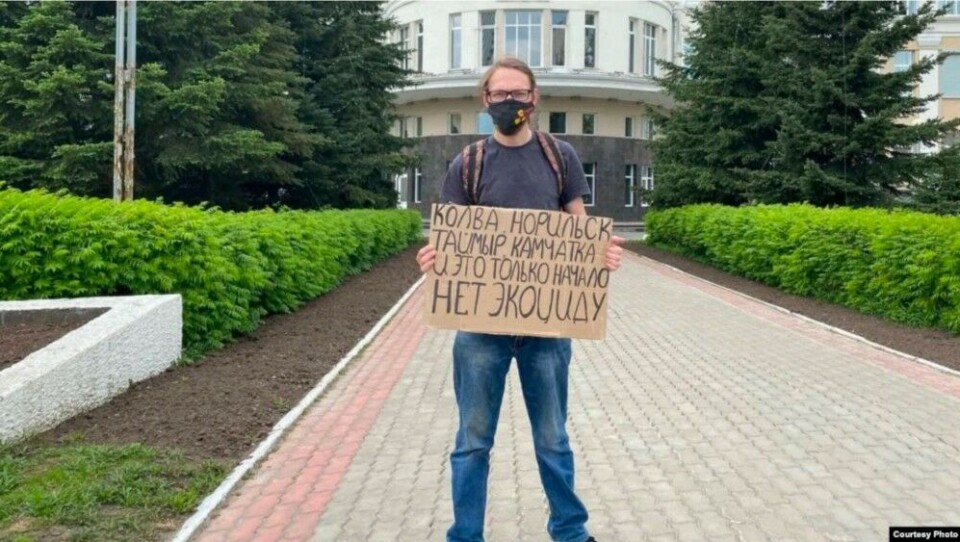 КОЛВА, НОРИЛЬСК
ТАЙМЫР, КАМЧАТКА
И ЭТО ТОЛЬКО НАЧАЛО
НЕТ ЭКОЦИДУ
Courtesy Photo